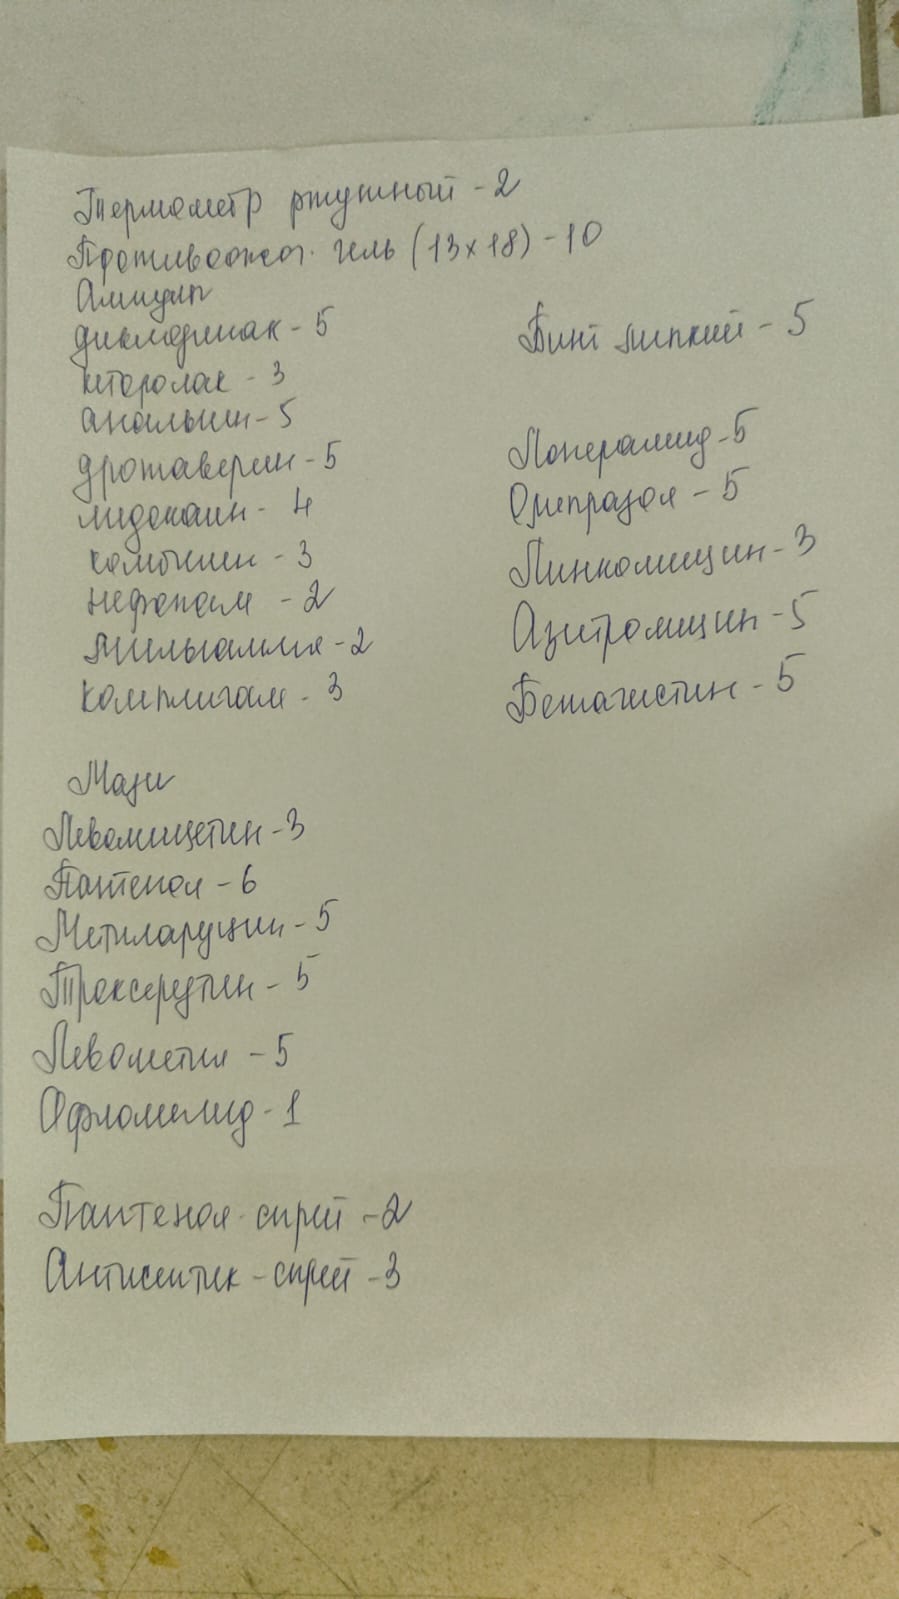 Термометр ртутный - 2
Противоожог. гель (13х18) - 10
Ампулы
диклофенак - 5
кеторолак - 3
анальгин - 5
дротаверин - 5
лидокаин - 4
комбилипен - 3
нефопам - 2
мильгамма - 2
комплигам - 3
Мази
Левомицетин - 3
Пантенол - 6
Метилурацил - 5
Троксерутин - 5
Левометил - 5
Афломелид - 1
Пантенол-спрей - 2
Антисептик - спрей - 3
Бинт липкий - 5
Лоперамид - 5
Омепразол - 5
Линкомицин - 3
Азитромицин - 5
Бетагистин - 5